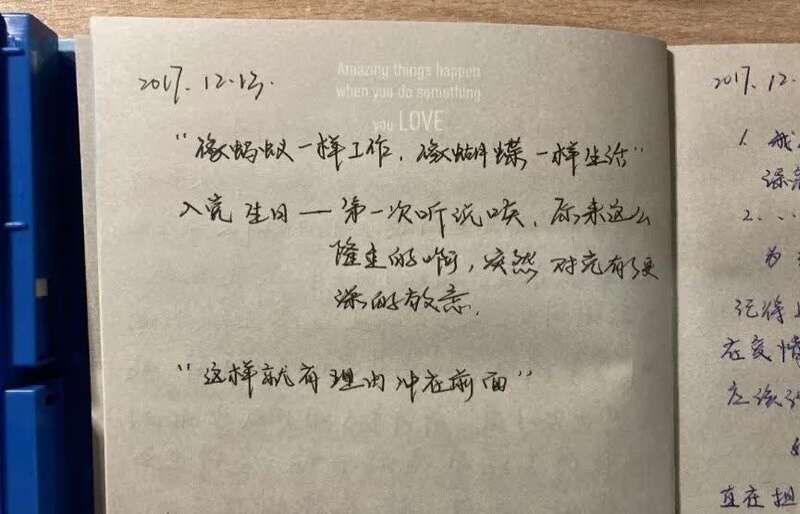 2017.12.13.
Amazing things happen
when you do something
you LOVE
"像蚂蚁一样工作,像蝴蝶一样生活"
入党生日——第一次听说唉,原来这么
隆重的啊,突然对党有了更
深的敬意.
"这样就有理由冲在前面"
2017.12.
1. 我
2. ..
为
记得
在爱情
应该
直在担